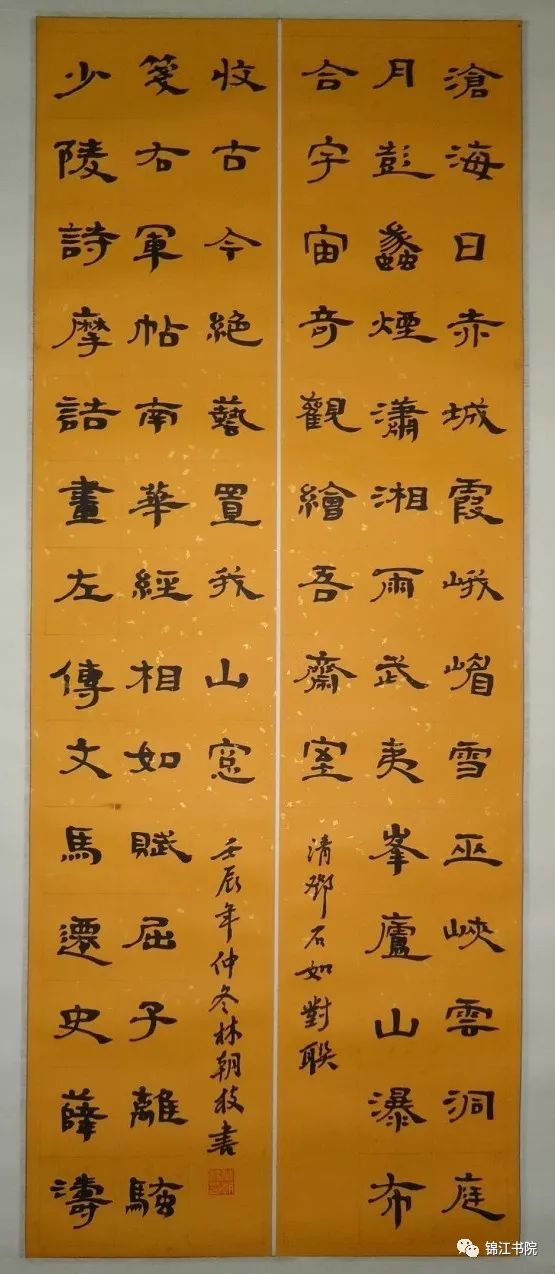 滄海日赤城霞峨嵋雪巫峽雲洞庭
月彭蠡煙瀟湘雨武夷峯廬山瀑布
合宇宙奇觀繪吾齋室
清鄧石如對聯
少陵詩摩詰畫左傳文馬遷史薛濤
箋右軍帖南華經相如賦屈子離騷
收古今絶藝置我山窓
壬辰年仲冬林朝枝書
锦江书院